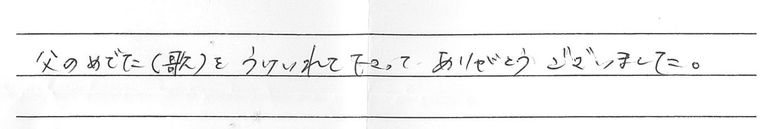 父のめでた(歌)を うけいれて下さって ありがとう ございました。